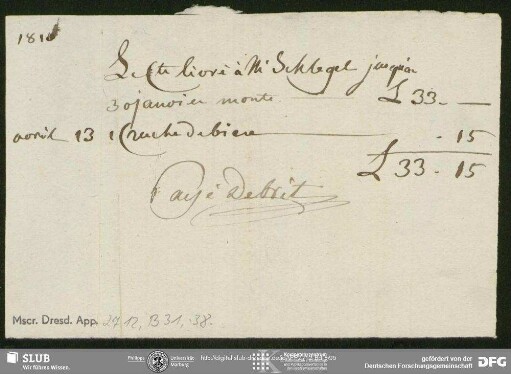 181
Le Cte livré à Mr Schlegel jusqu'au
30 janvier monte £ 33. —
avril 13 1 Cruche de biere . 15
£ 33 . 15
Payé Debrit
Mscr. Dresd. App. 2712, B31, 38.
SLUB
Wir führen Wissen.
Philipps Universität Marburg
gefördert von der
Deutschen Forschungsgemeinschaft
DFG